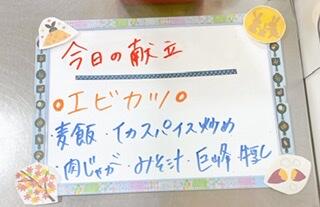 今日の献立
○エビカツ○
・麦飯・イカスパイス炒め
・肉じゃが・みそ汁・巨峰・牛乳